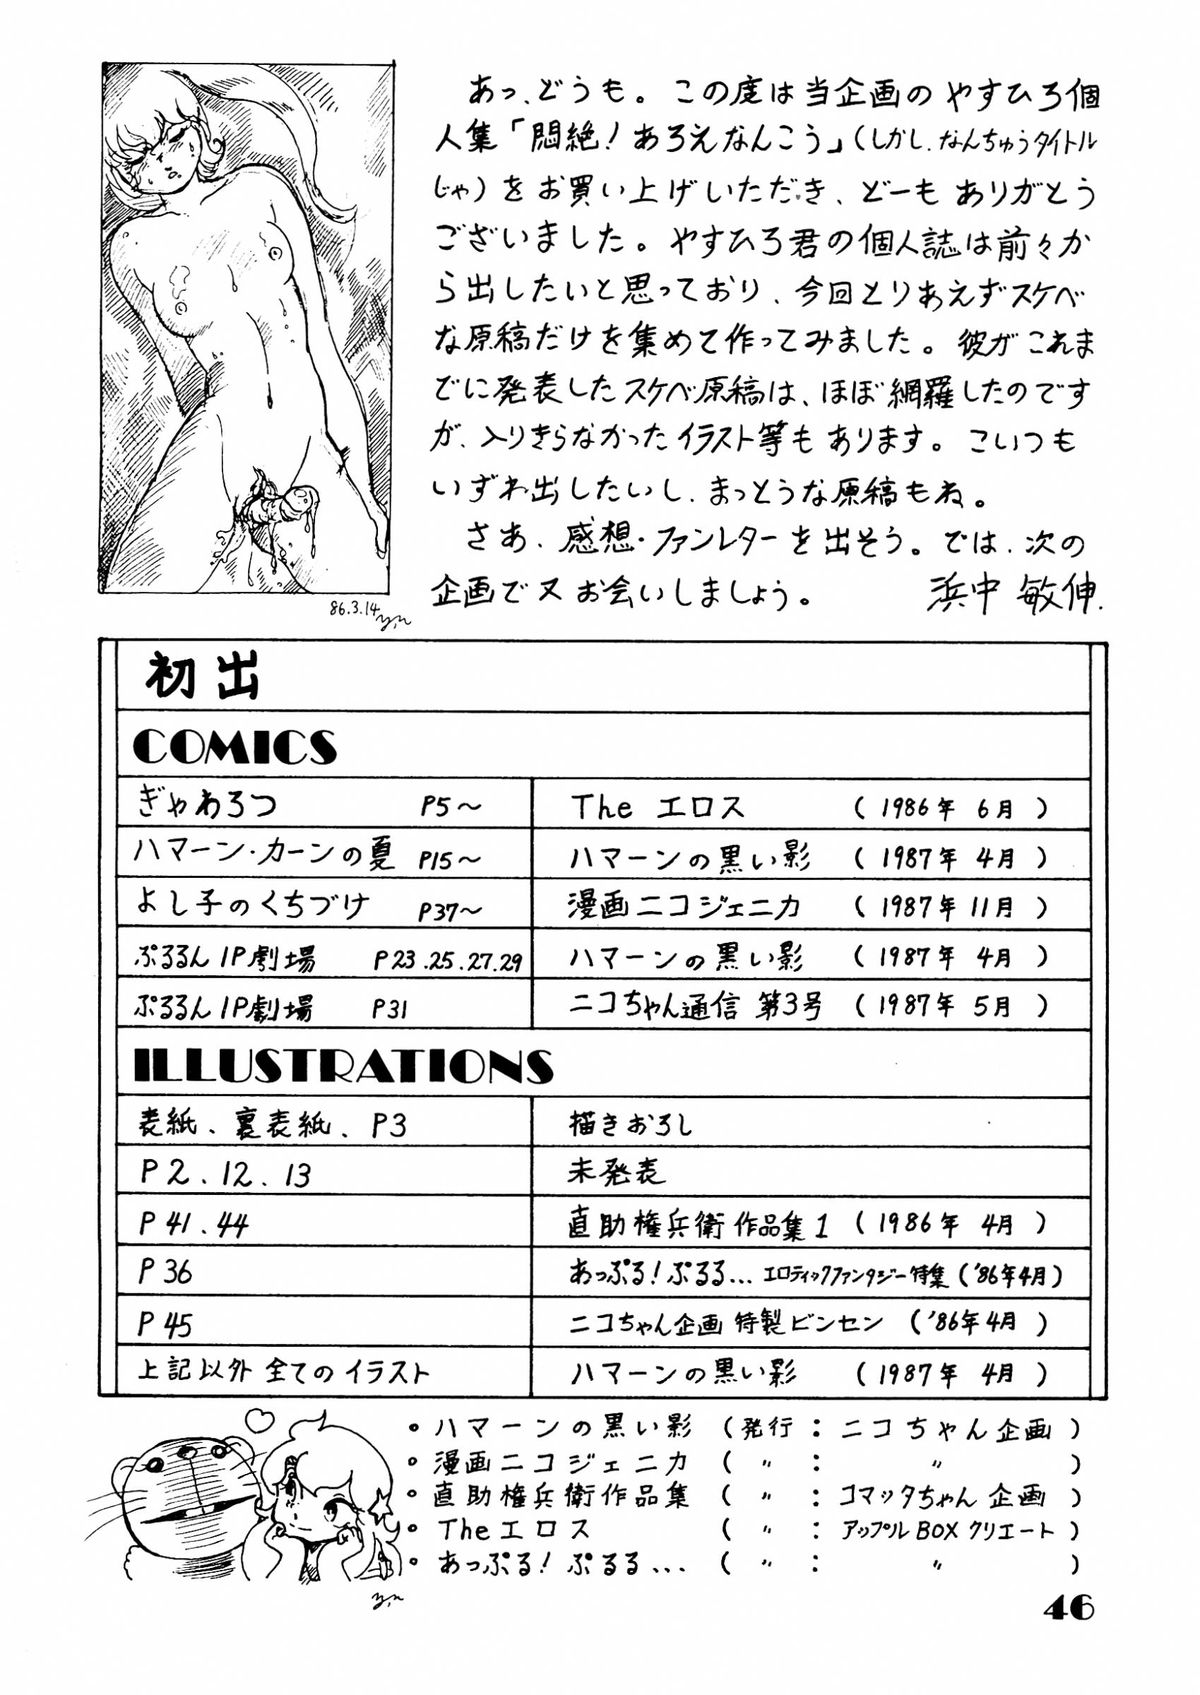 あっ、どうも。この度は当企画のやすひろ個
人集「悶絶!あろえなんこう」(しかし、なんちゅうタイトル
じゃ)をお買い上げいただき、どーもありがとう
ございました。やすひろ君の個人誌は前々か
ら出したいと思っており、今回とりあえずスケベ
な原稿だけを集めて作ってみました。彼がこれま
でに発表したスケベ原稿は、ほぼ網羅したのです
が、入りきらなかったイラスト等もあります。こいつも
いずれ出したいし、まっとうな原稿もね。
さあ、感想・ファンレターを出そう。では、次の
企画で又お会いしましょう。 浜中 敏伸.
86.3.14
初出
COMICS
ぎゃわろつ P5〜 The エロス (1986年 6月)
ハマーン・カーンの夏 P15〜 ハマーンの黒い影 (1987年 4月)
よし子のくちづけ P37〜 漫画ニコジェニカ (1987年 11月)
ぷるるん1P劇場 P23.25.27.29 ハマーンの黒い影 (1987年 4月)
ぷるるん1P劇場 P31 ニコちゃん通信 第3号 (1987年 5月)
ILLUSTRATIONS
表紙、裏表紙、P3 描きおろし
P2.12.13 未発表
P41.44 直助権兵衛作品集1 (1986年 4月)
P36 あっぷる!ぷるる…エロティックファンタジー特集('86年4月)
P45 ニコちゃん企画 特製ビンセン ('86年4月)
上記以外全てのイラスト ハマーンの黒い影 (1987年 4月)
・ハマーンの黒い影 (発行:ニコちゃん企画)
・漫画ニコジェニカ (〃:〃)
・直助権兵衛作品集 (〃:コマッタちゃん企画)
・Theエロス (〃:アップルBOXクリエート)
・あっぷる!ぷるる… (〃:〃)
46